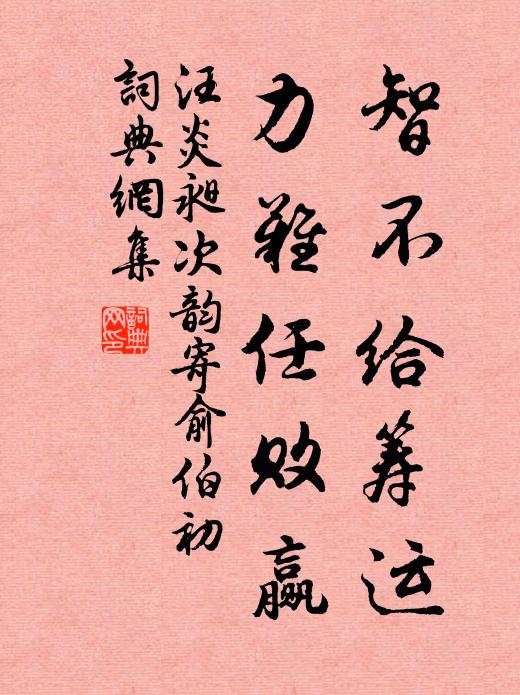 智不给筹运
力难任败赢
汪炎昶次韵寄俞伯初
詞典網集
詞典网印